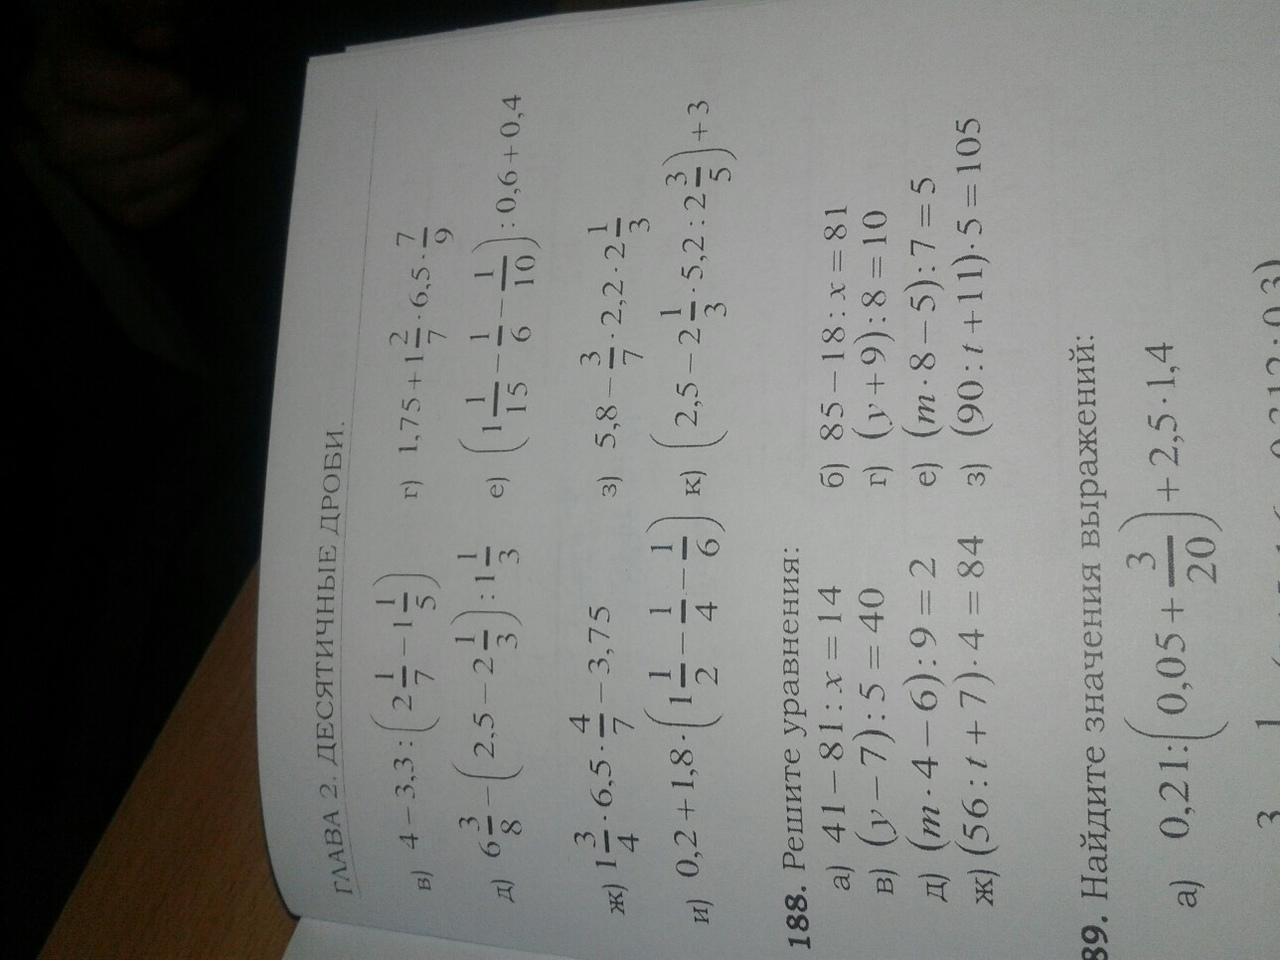 ГЛАВА 2. ДЕСЯТИЧНЫЕ ДРОБИ.
в) 4 − 3,3 : (2 1/7 − 1 1/5) г) 1,75 + 1 2/7 · 6,5 · 7/9
д) 6 3/8 − (2,5 − 2 1/3) : 1 1/3 е) (1 1/15 − 1/6 − 1/10) : 0,6 + 0,4
ж) 1 3/4 · 6,5 · 4/7 − 3,75 з) 5,8 − 3/7 · 2,2 · 2 1/3
и) 0,2 + 1,8 · (1 1/2 − 1/4 − 1/6) к) (2,5 − 2 1/3 · 5,2 : 2 3/5) + 3
188. Решите уравнения:
а) 41 − 81 : x = 14 б) 85 − 18 : x = 81
в) (y − 7) : 5 = 40 г) (y + 9) : 8 = 10
д) (m · 4 − 6) : 9 = 2 е) (m · 8 − 5) : 7 = 5
ж) (56 : t + 7) · 4 = 84 з) (90 : t + 11) · 5 = 105
89. Найдите значения выражений:
а) 0,21 : (0,05 + 3/20) + 2,5 · 1,4